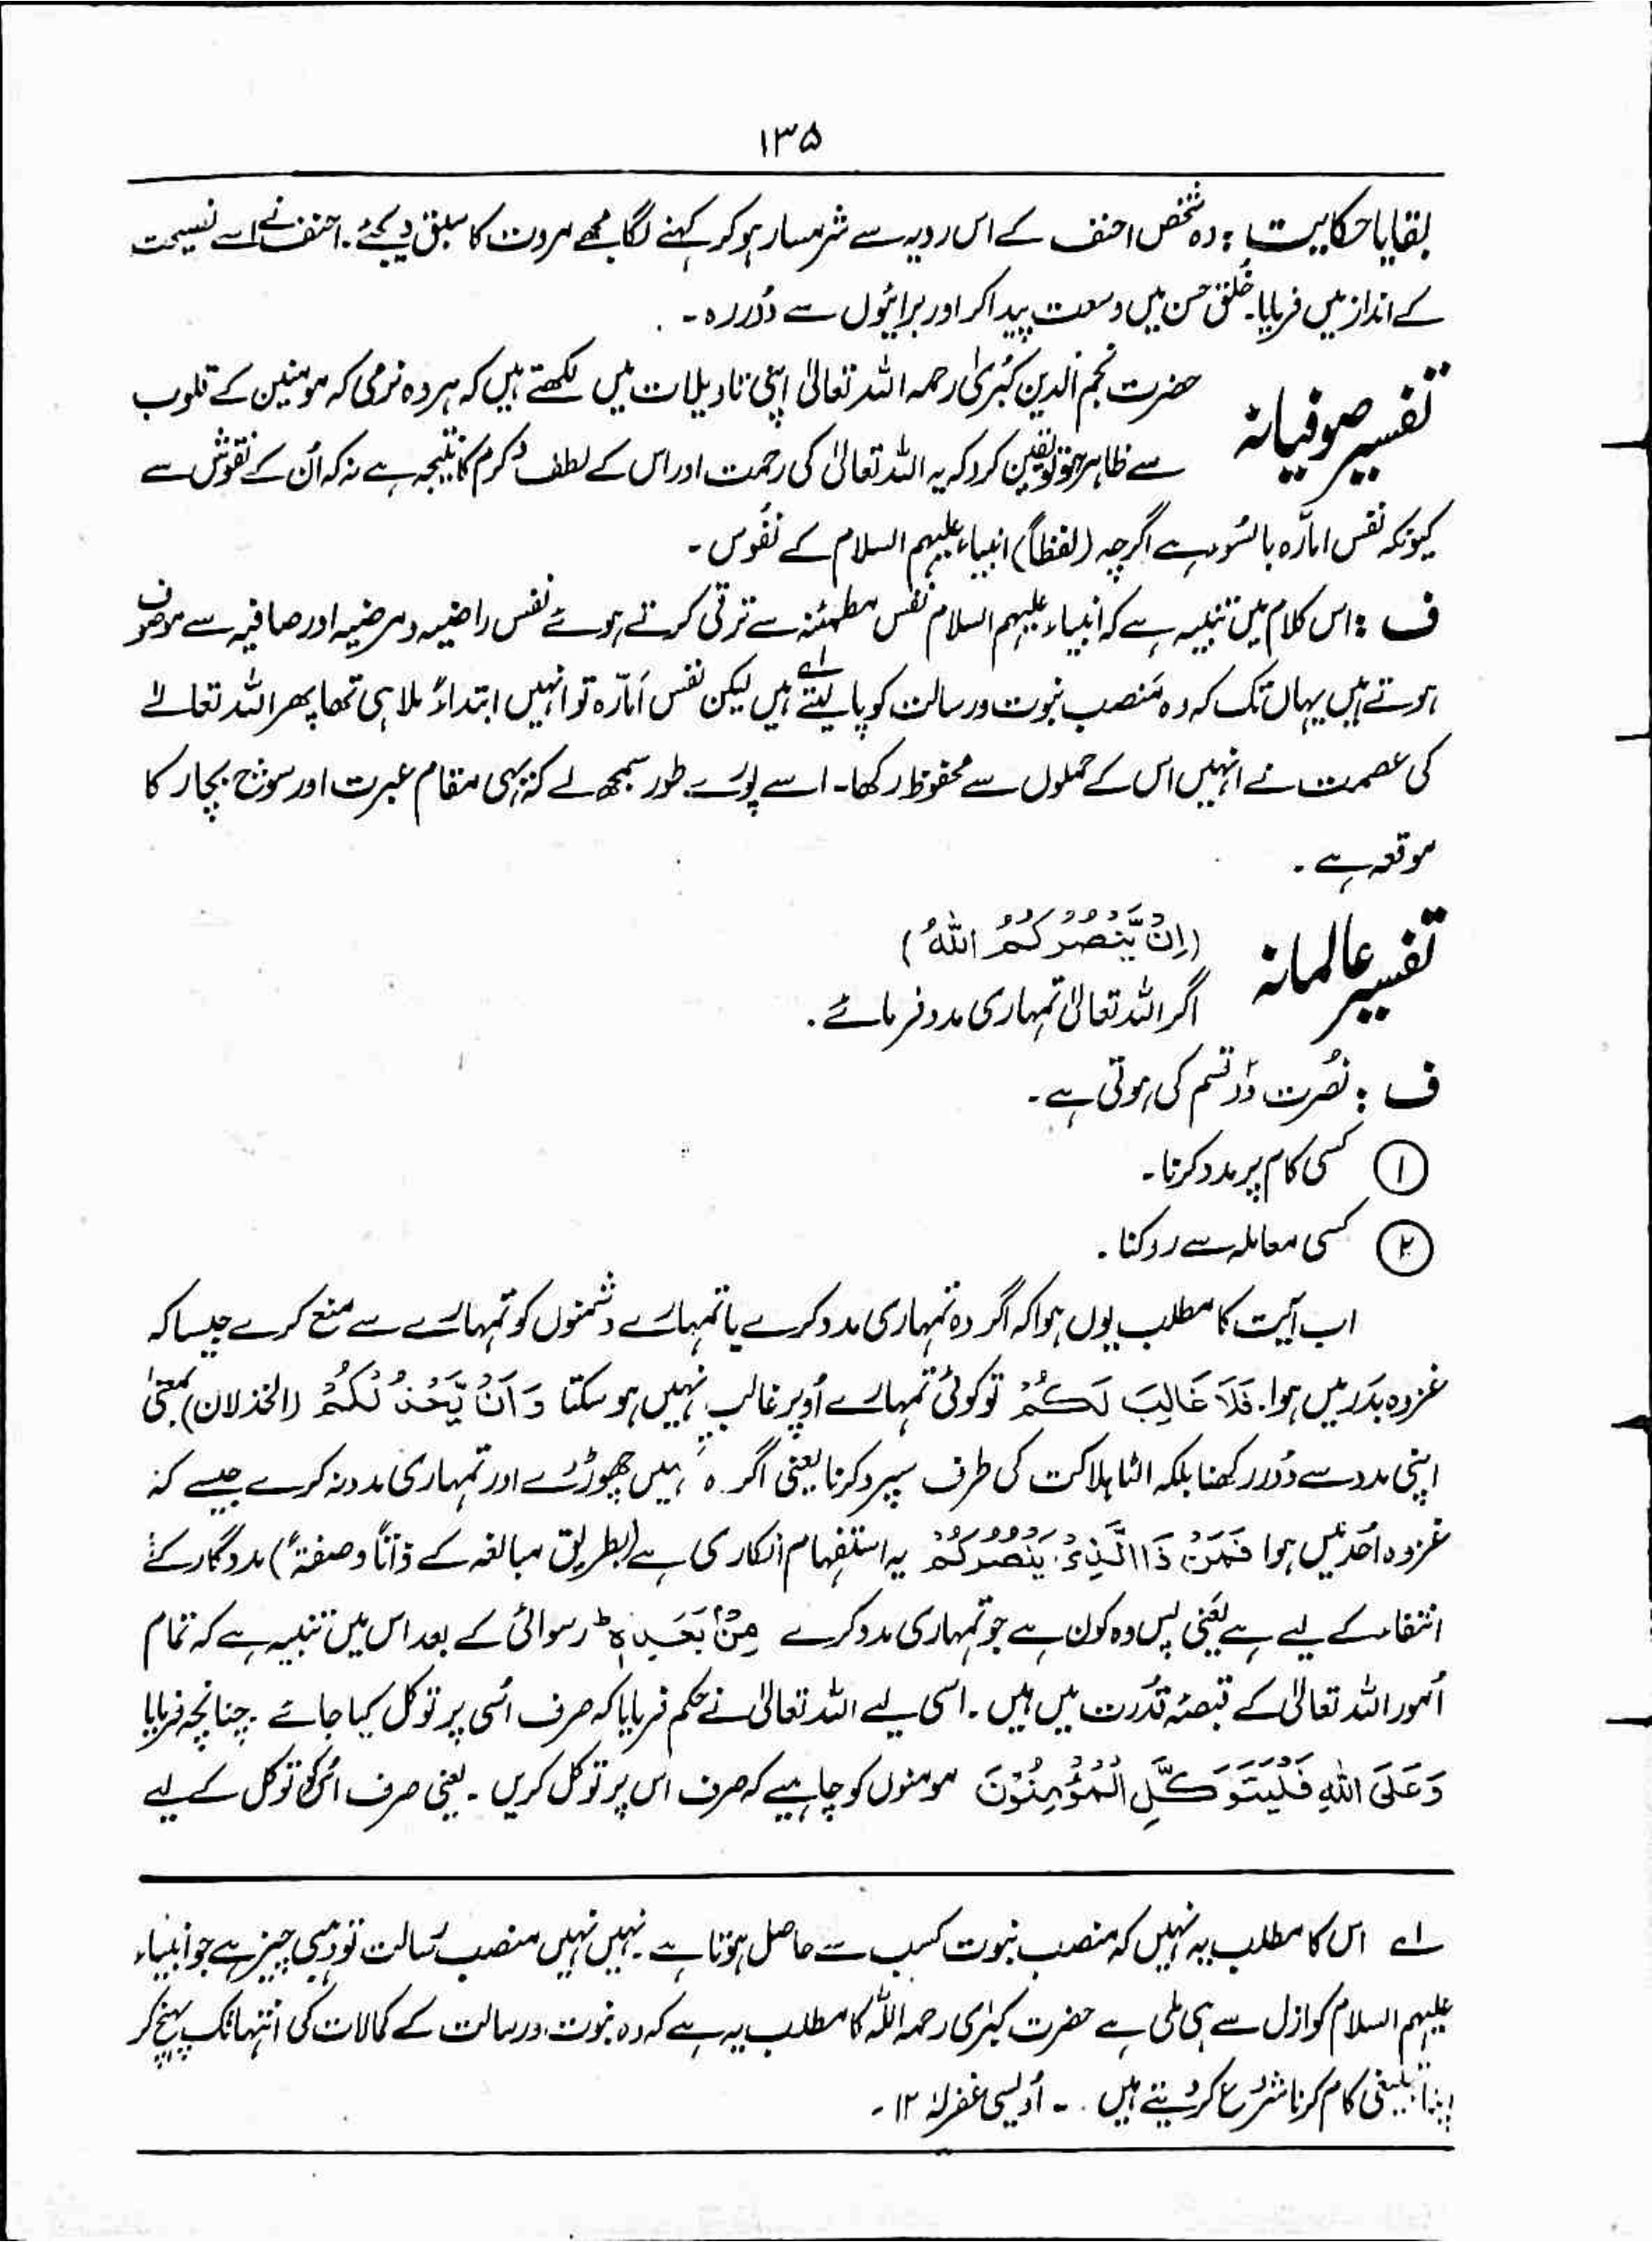 ۱۳۵
بقایا حکایت : وہ شخص احنف کے اس رویہ سے شرمسار ہو کر کہنے لگا مجھے مروت کا سبق دیجئے ۔ احنف نے اسے نصیحت
کے انداز میں فرمایا ۔ خُلق حسن میں وسعت پیدا کر اور برائیوں سے دُور رہ ۔
تفسیر صوفیانہ
حضرت نجم الدین کُبریٰ رحمہ اللہ تعالیٰ اپنی تاویلات میں لکھتے ہیں کہ ہر وہ نرمی کہ مومنین کے قلوب
سے ظاہر ہو تو یقین کرو کہ یہ اللہ تعالیٰ کی رحمت اور اس کے لطف و کرم کا نتیجہ ہے نہ کہ اُن کے نفوس سے
کیونکہ نفس امارَّہ بالسُوء ہے اگرچہ (لفظاً) انبیاء علیہم السلام کے نفُوس ۔
ف : اس کلام میں تنبیہ ہے کہ انبیاء علیہم السلام نفس مطمئنہ سے ترقی کرتے ہوئے نفس راضیہ و مرضیہ اور صافیہ سے موصوف
ہوتے ہیں یہاں تک کہ وہ مَنصب نبوت و رسالت کو پا لیتے ہیں لے لیکن نفس اَمّارہ تو انہیں ابتداءً ملا ہی تھا پھر اللہ تعالےٰ
کی عصمت نے انہیں اس کے حملوں سے محفوظ رکھا ۔ اسے پورے طور سمجھ لے کہ یہی مقام عبرت اور سوچ بچار کا
موقعہ ہے ۔
تفسیر عالمانہ
(اِنْ یَّنْصُرْکُمُ اللّٰہُ)
اگر اللہ تعالیٰ تمہاری مدد فرمائے ۔
ف : نصُرت دوؔ قسم کی ہوتی ہے ۔
① کسی کام پر مدد کرنا ۔
② کسی معاملہ سے روکنا ۔
اب آیت کا مطلب یوں ہوا کہ اگر وہ تمہاری مدد کرے یا تمہارے دشمنوں کو تمہارے سے منع کرے جیسا کہ
غزوہ بدَر میں ہوا ۔ فَلَا غَالِبَ لَکُمْ تو کوئی تمہارے اُوپر غالب نہیں ہو سکتا وَ اِنْ یَّخْذُلْکُمْ (الخذلان) بمعنیٰ
اپنی مدد سے دُور رکھنا بلکہ الٹا ہلاکت کی طرف سپرد کرنا یعنی اگر وہ ہیں چھوڑدے اور تمہاری مدد نہ کرے جیسے کہ
غزوہ اُحد میں ہوا فَمَنْ ذَا الَّذِیْ یَنْصُرُکُمْ یہ استفہام انکاری ہے (بطریق مبالغہ کے ذاتاً و صفۃً) مددگار کے
انتفاء کے لیے ہے یعَنی پس وہ کون ہے جو تمہاری مدد کرے مِنْۢ بَعْدِہٖ ؕ رسوائی کے بعد اس میں تنبیہ ہے کہ تمام
اُمور اللہ تعالیٰ کے قبضۂ قدُرت میں ہیں ۔ اسی لیے اللہ تعالیٰ نے حکم فرمایا کہ صرف اُسی پر توکل کیا جائے ۔ چنانچہ فرمایا
وَعَلَی اللّٰہِ فَلْیَتَوَکَّلِ الْمُؤْمِنُوْنَ مومنوں کو چاہیے کہ صرف اس پر توکل کریں ۔ یعنی صرف اُس کو توکل کے لیے
لے اس کا مطلب یہ نہیں کہ منصب نبوت کسب سے حاصل ہوتا ہے ۔ نہیں نہیں منصب رسالت تو وہبی چیز ہے جو انبیاء
علیہم السلام کو ازل سے ہی ملی ہے حضرت کبرٰی رحمہ اللہ کا مطلب یہ ہے کہ وہ نبوت و رسالت کے کمالات کی انتہا تک پہنچ کر
اپنا تبلیغی کام کرنا شروع کر دیتے ہیں ۔ ۔ اُویسی غفرلہٗ ۱۲ ۔